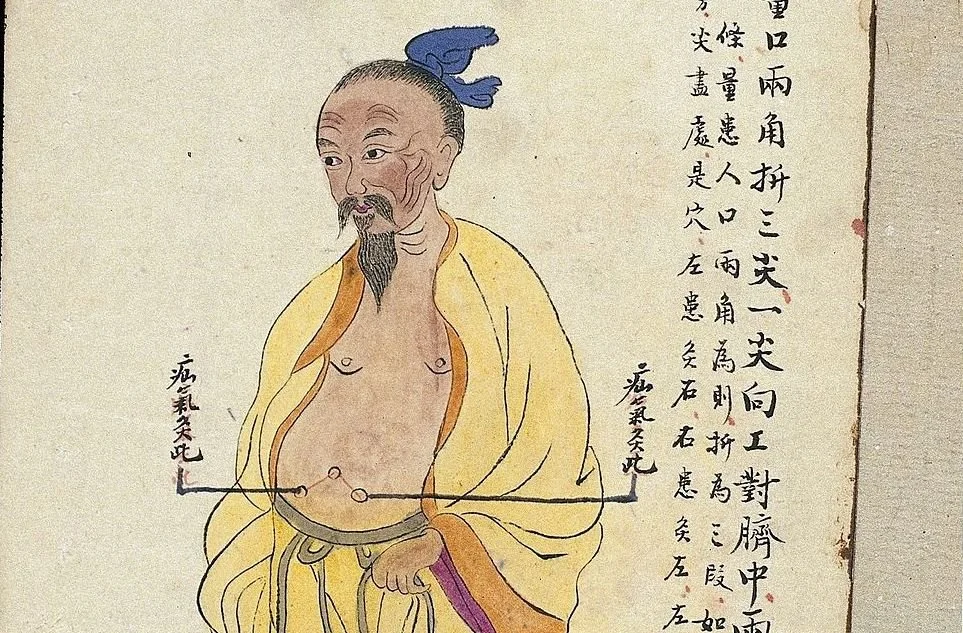 量口兩角拼三尖一尖向工對臍中兩
條量患人口兩角為則折為三段如
尖盡處是穴左患灸石右患灸左左
疝氣灸此
疝氣灸此